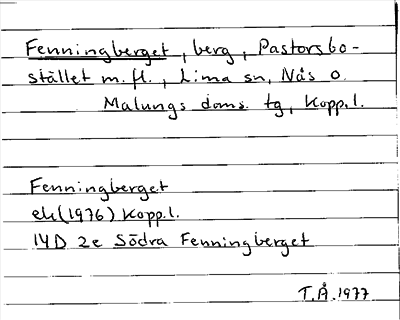 Fenningberget, berg, Pastorsbo-
stället m.fl., Lima sn, Nås o.
Malungs doms. tg, Kopp.l.
Fenningberget
ek(1976) Kopp.l.
14D 2e Södra Fenningberget
T.Å.1977